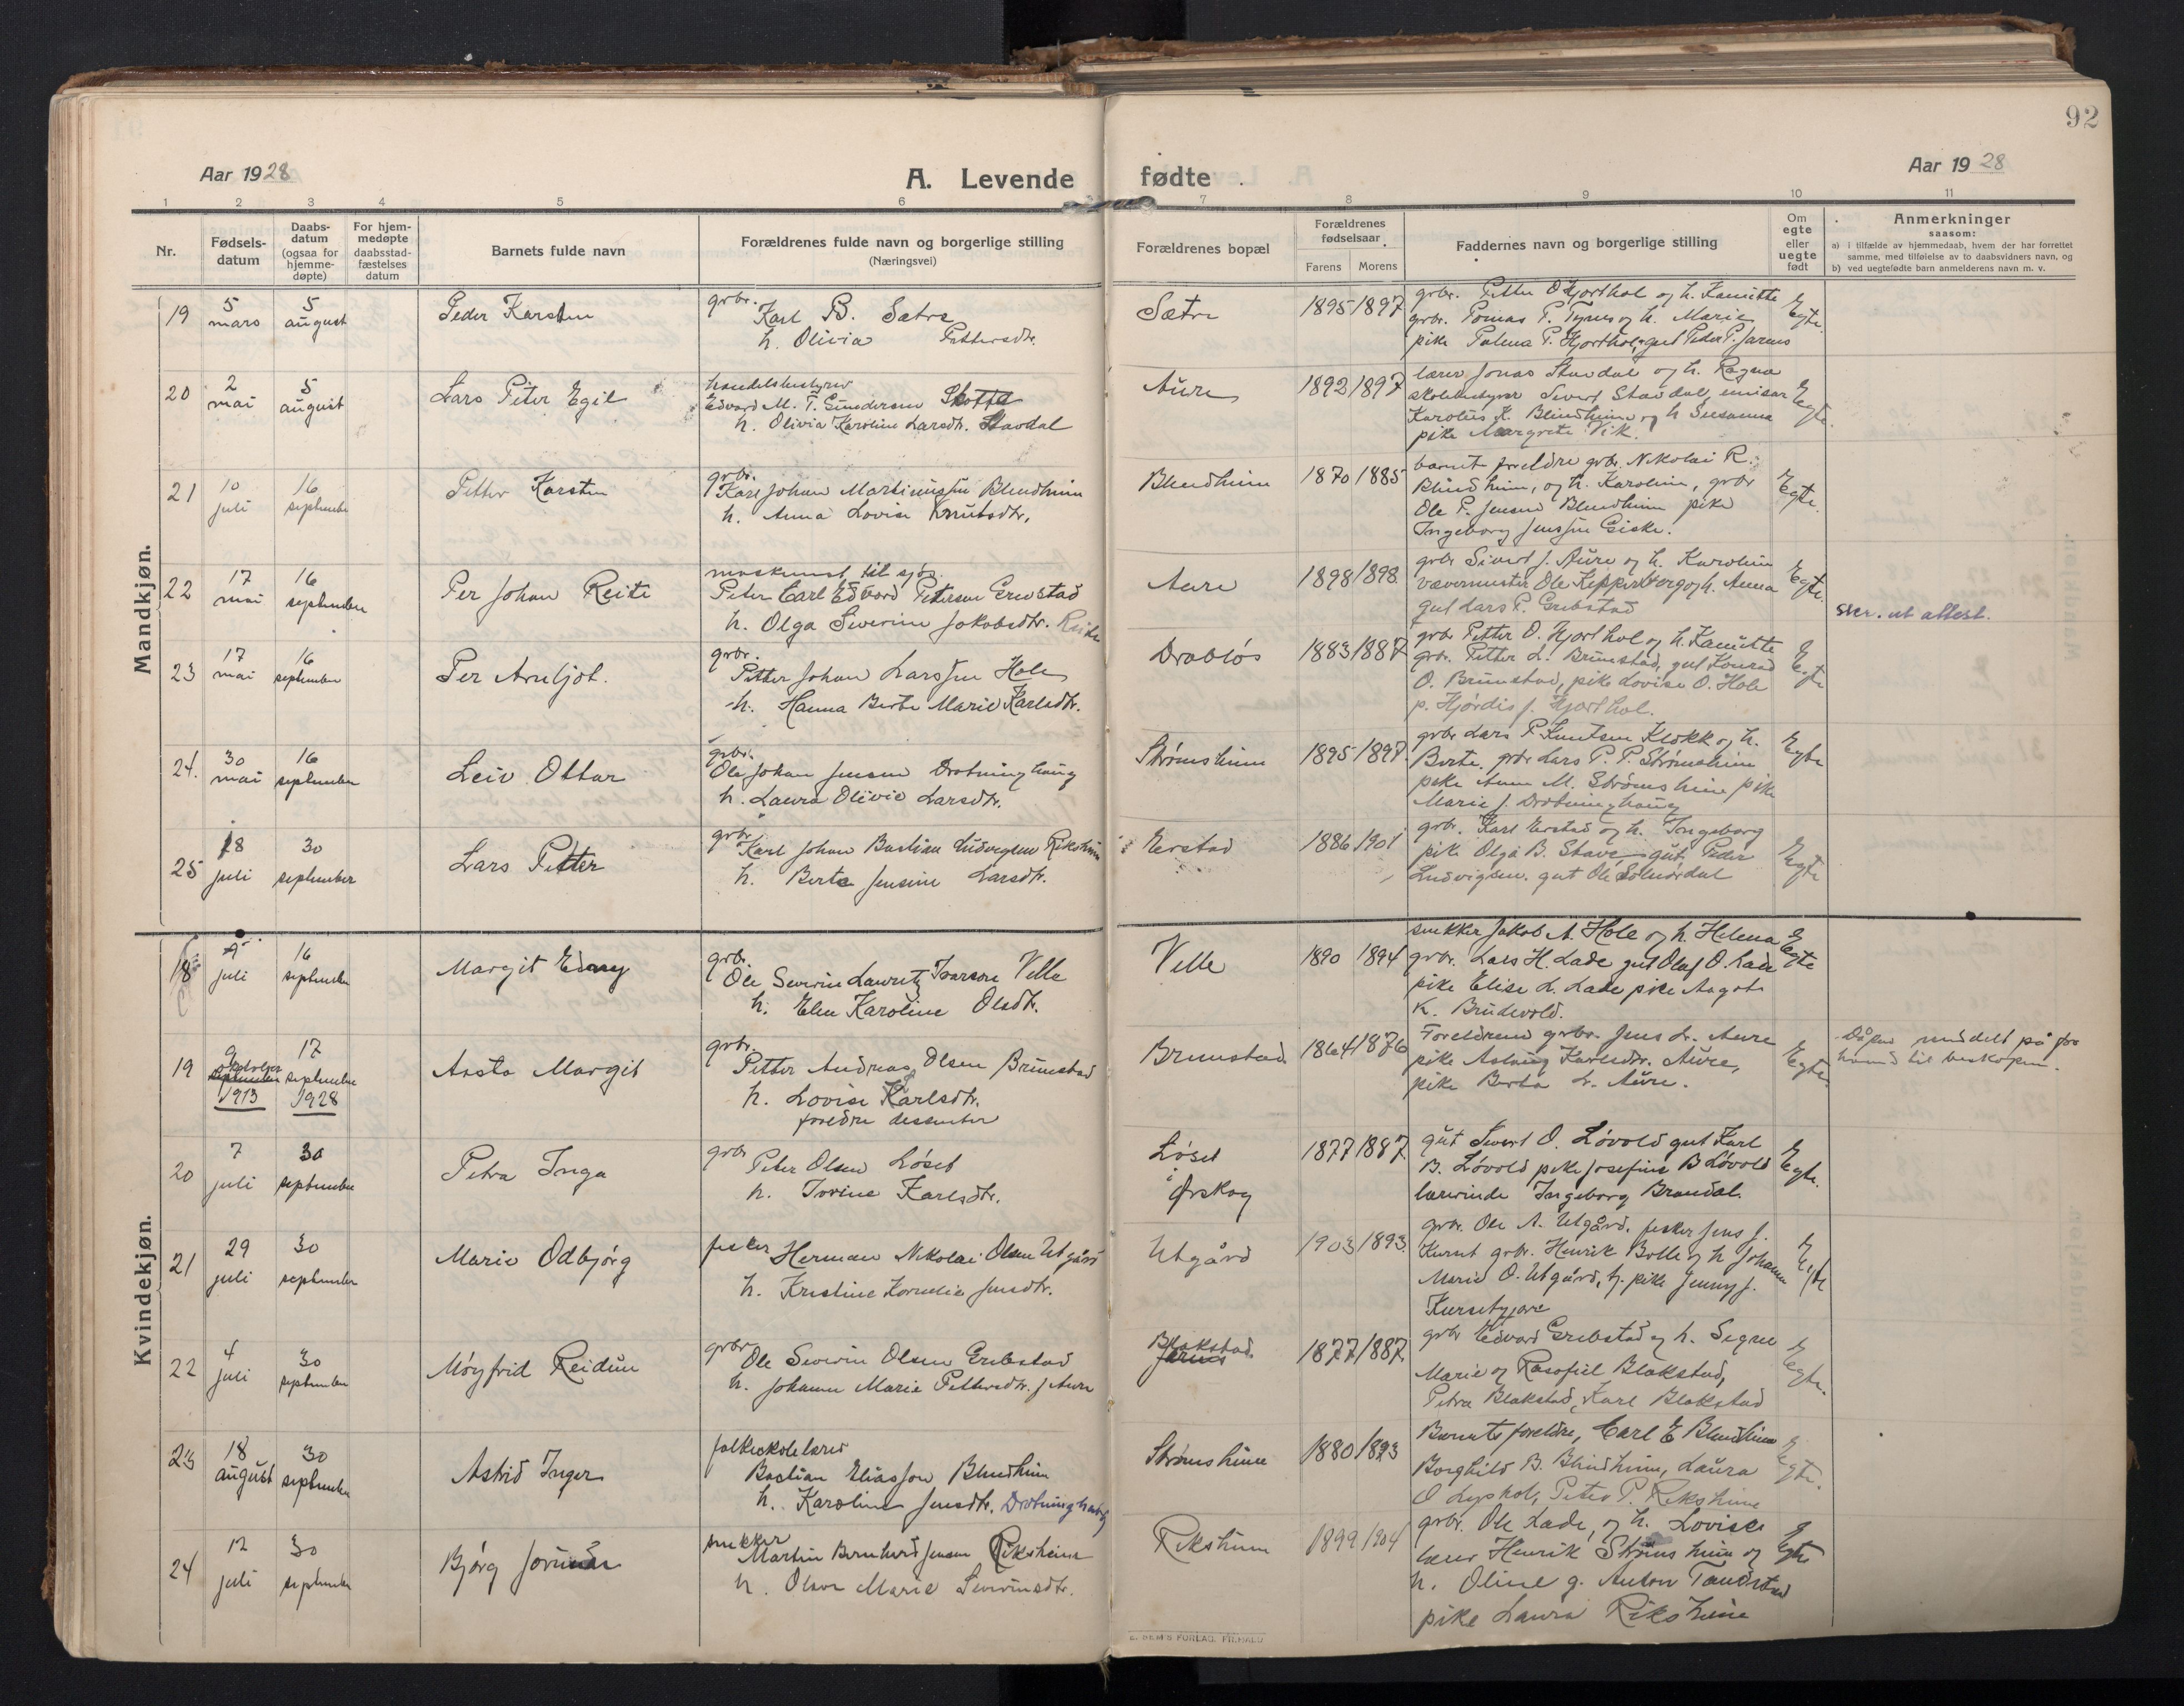 92
Aar 1928
A. Levende fødte
Aar 1928
1 2 3 4 5 6 7 8 9 10 11
Nr.
Fødsels-
datum
Daabs-
datum
(ogsaa for
hjemme-
døpte)
For hjem-
medøpte
daabsstad-
fæstelses
datum
Barnets fulde navn
Forældrenes fulde navn og borgerlige stilling
(Næringsvei)
Forældrenes bopæl
Forældrenes
fødselsaar
Farens Morens
Faddernes navn og borgerlige stilling
Om
egte
eller
uegte
født
Anmerkninger
saasom:
a) i tilfælde av hjemmedaab, hvem der har forrettet
samme, med tilføielse av to daabsvidners navn, og
b) ved uegtefødte barn anmelderens navn m. v.
Mandkjøn.
19
5 mars
5 august
Peder Karsten
grbr.
Karl B. Sætre
h. Olivia Pettersdtr.
Sætre
1895 1897
grbr. Petter O Hjorthol og h. Kamitte
grbr. Tomas P. og h. Marie
pike P. Hjorthol, gut Peder P.
Egte.
20
2 mai
5 august
Lars Peter Egil
handelsbestyrer
Edvard M. T. Gundersen
h. Olivia Karoline Larsdtr. Stavdal
Aure
1892 1897
lærer Jonas Stavdal og h. Ragna
skolebestyrer Sivert Stavdal, emisær
Karolus K. Blindheim og h Susanna
pike Margrete Vik.
Egte.
21
10 juli
16 september
Petter Karsten
grbr.
Karl Johan Martinussen Blindheim
h. Anna Lovise Knutsdtr.
Blindheim
1870 1885
barnets foreldre grbr. Nikolai R.
Blindheim, og h. Karoline, grbr
Ole P. Jensen Blindheim pike
Ingeborg Giske.
Egte.
22
17 mai
16 september
Per Johan Reite
maskinist til sjøs
Peter Carl Edvard Peterson Grebstad
h. Olga Severine Jakobsdtr. Reite
Aure
1898 1898
grbr Sivert J. Aure og h. Karoline
vævermester Ole og h. Anna
gut Lars P. Grebstad
Egte.
skr. ut attest.
23
17 mai
16 september
Per Arnljot.
grbr.
Petter Johan Larssen Hole
h. Hanna Berte Marie Karlsdtr.
Drabløs
1883 1887
grbr Petter O. Hjorthol og h. Kamitte
grbr. Petter L. Brunstad, gut Konrad
O. Brunstad, pike Lovise O. Hole
p. Hjørdis J. Hjorthol.
Egte
24.
30 mai
16 september
Leiv Ottar
grbr.
Ole Johan Jensen Drotninghaug
h. Laura Olivie Larsdtr.
Strømsheim
1895 1897.
grbr Lars P. Knutsen Klokk og h.
Berte. grbr Lars P. P. Strømsheim
pike Anne M. Strømsheim pike
Marie J. Drotninghaug
Egte
25
18 juli
30 september
Lars Petter
grbr.
Karl Johan Bastian Ludvigsen Riksheim
h. Berte Jensine Larsdtr.
Erstad
1886 1901
grbr. Karl Erstad og h. Ingeborg
pike Olga B. Stave gut Peder
Ludvigsen. gut Ole Solnørdal
Egte
Kvindekjøn.
18
5 juli
16 september
Margit Edny
grbr.
Ole Severin Lauritz Ivarson Velle
h. Elen Karoline Olsdtr.
Velle
1890 1894
snekker Jakob A. Hole og h. Helena
grbr. Lars H. Lade gut Olaf O. Lade
pike Elise L. Lade pike Aagot
K. Brudevold.
Egte
19
9 oktober
september
1913
17 september
1928
Aasta Margit
grbr.
Petter Andreas Olsen Brunstad
h. Lovise Karlsdtr.
foreldre dissenter
Brunstad
1864 1876
Foreldrene grbr. Jens L. Aure
pike Aslaug Karlsdtr. Aure,
pike Berta L. Aure.
Egte
Dåpen meddelt på
til biskopen.
20
7 juli
30 september
Petra Inga
grbr
Peter Olsen Løset
h. Karlsdtr.
Løset
i
Ørskog
1877 1887
gut Sivert O. Løvold gut Karl
B. Løvold pike Josefine B Løvold
lærerinde Ingeborg Brandal.
Egte.
21
29 juli
30 september
Marie Odbjørg
fisker Herman Nikolai Olsen Utgård
h. Kristine Kornelie Jensdtr.
Utgård
1903 1893.
grbr. Ole A. Utgård, fisker Jens J.
grbr. Henrik Bolle og h Johanne
Marie O. Utgård, pike Jenny J.
Egte
22
4 juli
30 september
Møyfrid Reidun
grbr
Ole Severin Olsen Grebstad
h. Johanne Marie Pettersdtr.
Blakstad
Jarnes
1877 1887
grbr Edvard Grebstad og h. Signe
Marie og Rasofiel Blakstad,
Petra Blakstad, Karl Blakstad
Egte.
23
18 august
30 september
Astrid Inger
folkeskolelærer
Bastian Eliassen Blindheim
h. Karoline Jensdtr. Drotninghaug
Strømsheim
1880 1893
Barnets foreldre, Carl E Blindheim
Borghild B. Blindheim, Laura
O Lyshol, Peter P. Riksheim
Egte.
24
12 juli
30 september
Bjørg Jorunn
snekker
Martin Bernhard Jensen Riksheim
h. Olave Marie Severinsdtr.
Riksheim
1899 1904
grbr. Ole Lade, og h. Lovise
lærer Henrik Strømsheim og
h. Oline g. Anton Tandstad
pike Laura Riksheim
Egte